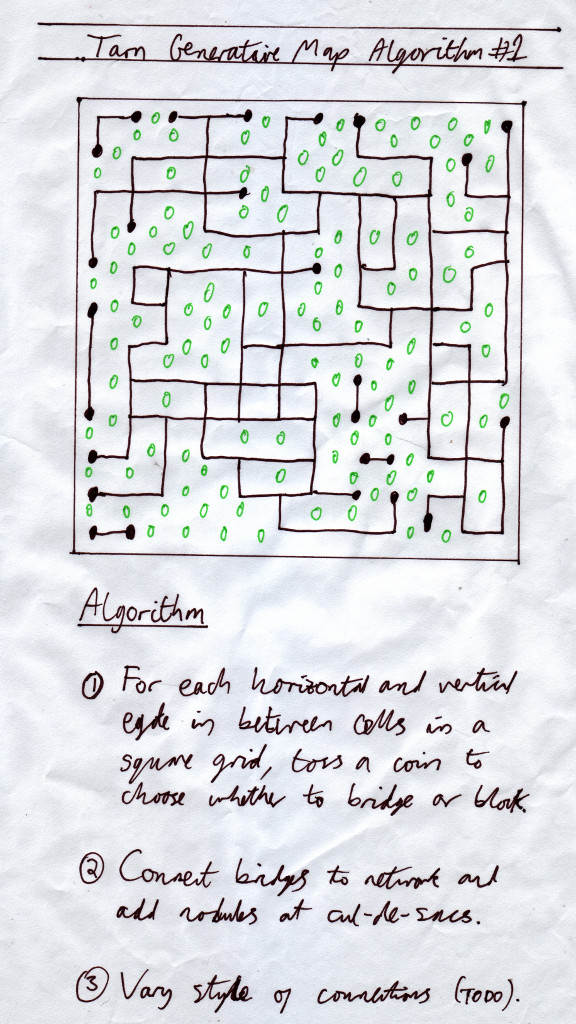 Tarn Generative Map Algorithm #1
Algorithm
① For each horizontal and vertical
egde in between cells in a
square grid, toss a coin to
choose whether to bridge or block.
② Connect bridges to network and
add nodules at cul-de-sacs.
③ Vary style of connections (TODO).